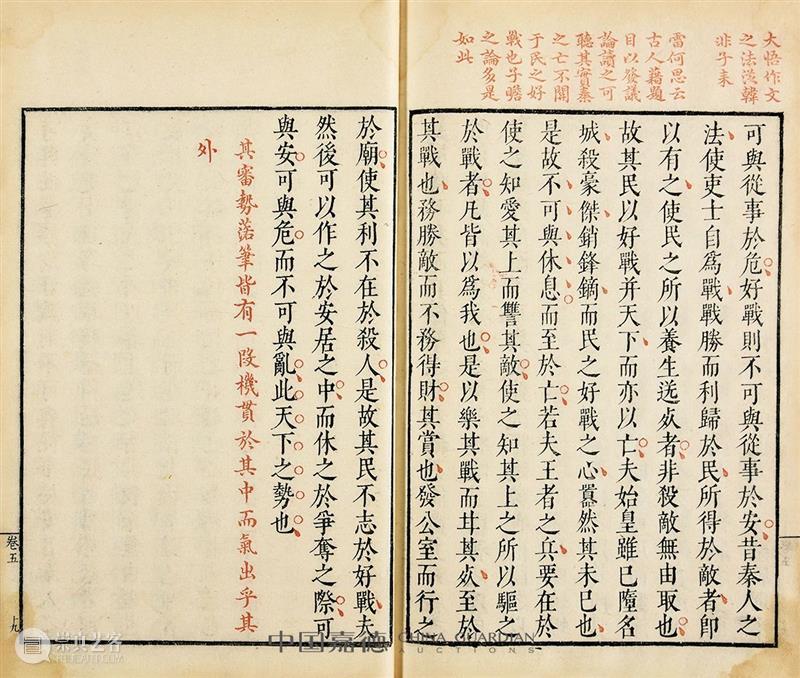 大悟作文
之法從韓
非子来
雷何思云
古人藉題
目以發議
論讀之可
聽其實秦
之亡不關
于民之好
戰也子瞻
之論多是
如此
可與從事於危好戰則不可與從事於安昔秦人之
法使吏士自爲戰戰勝而利歸於民所得於敵者即
以有之使民之所以養生送死者非殺敵無由取也
故其民以好戰并天下而亦以亡夫始皇雖已墮名
城殺豪傑銷鋒鏑而民之好戰之心囂然其未已也
是故不可與休息而至於亡若夫王者之兵要在於
使之知愛其上而讐其敵使之知其上之所以驅之
於戰者凡皆以爲我也是以樂其戰而甘其死至於
其戰也務勝敵而不務得財其賞也發公室而行之
於廟使其利不在於殺人是故其民不志於好戰夫
然後可以作之於安居之中而休之於爭奪之際可
與安可與危而不可與亂此天下之勢也
其審勢落筆皆有一段機貫於其中而氣出乎其
外
卷五
九
中国嘉德 CHINA GUARDIAN
AUCTIONS
崇真艺客